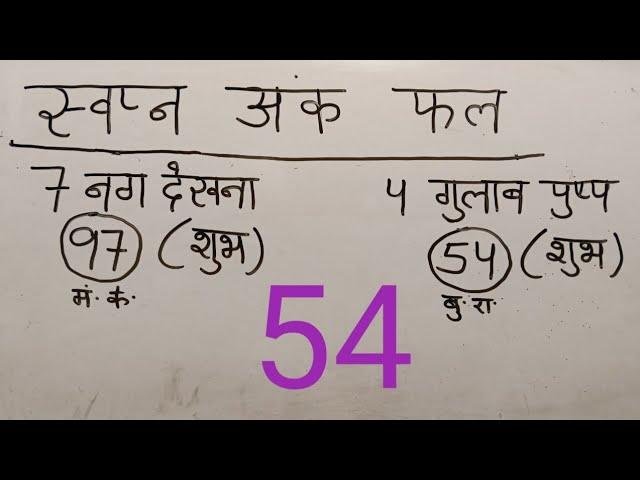 स्वप्न अंक फल
7 नग देखना
97 (शुभ)
मं. के.
4 गुलाब पुष्प
54 (शुभ)
बु. रा.
54